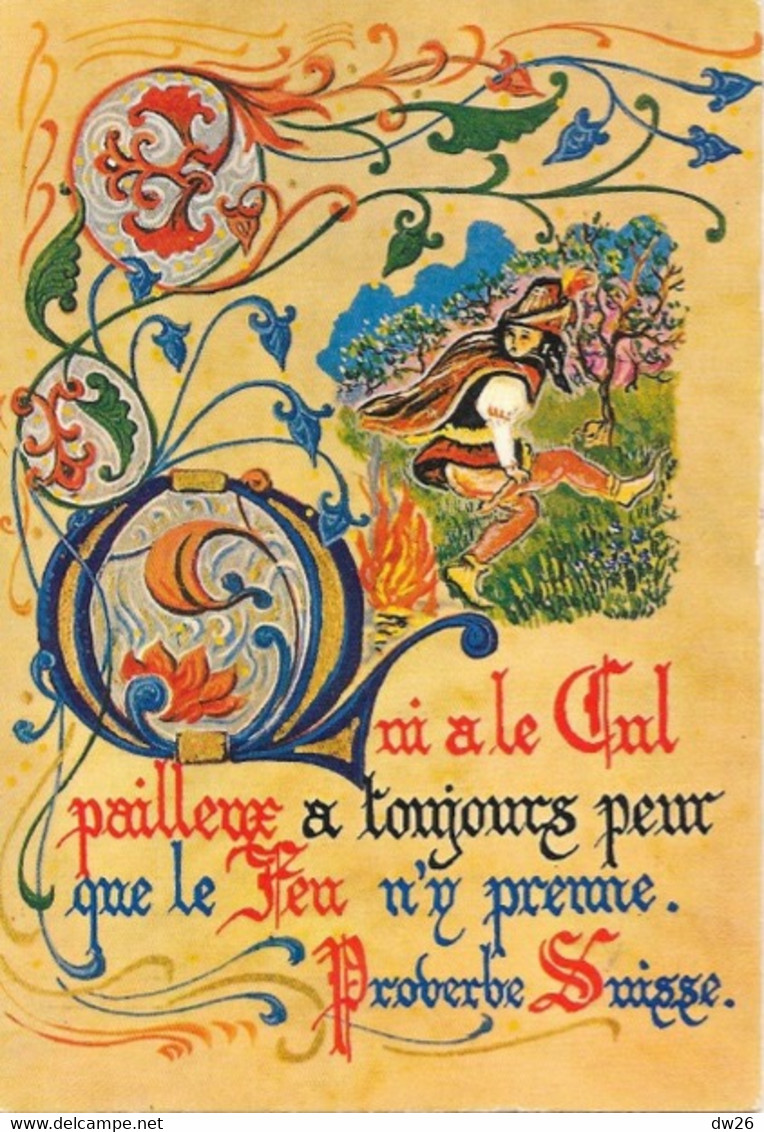 Qui a le Cul
pailleux a toujours peur
que le Feu n'y prenne.
Proverbe Suisse.
delcampe.net
dw26